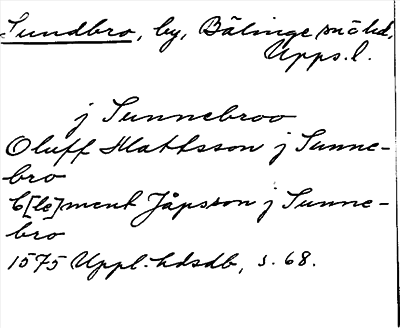 Sundbro, by, Bälinge snö hd,
Upps.l.
j Sunnebroo
Oluff Mattsson j Sunne-
bro
C[le]ment Jåpsson j Sunne-
bro
1575 Uppl. hdsdb, s. 68.